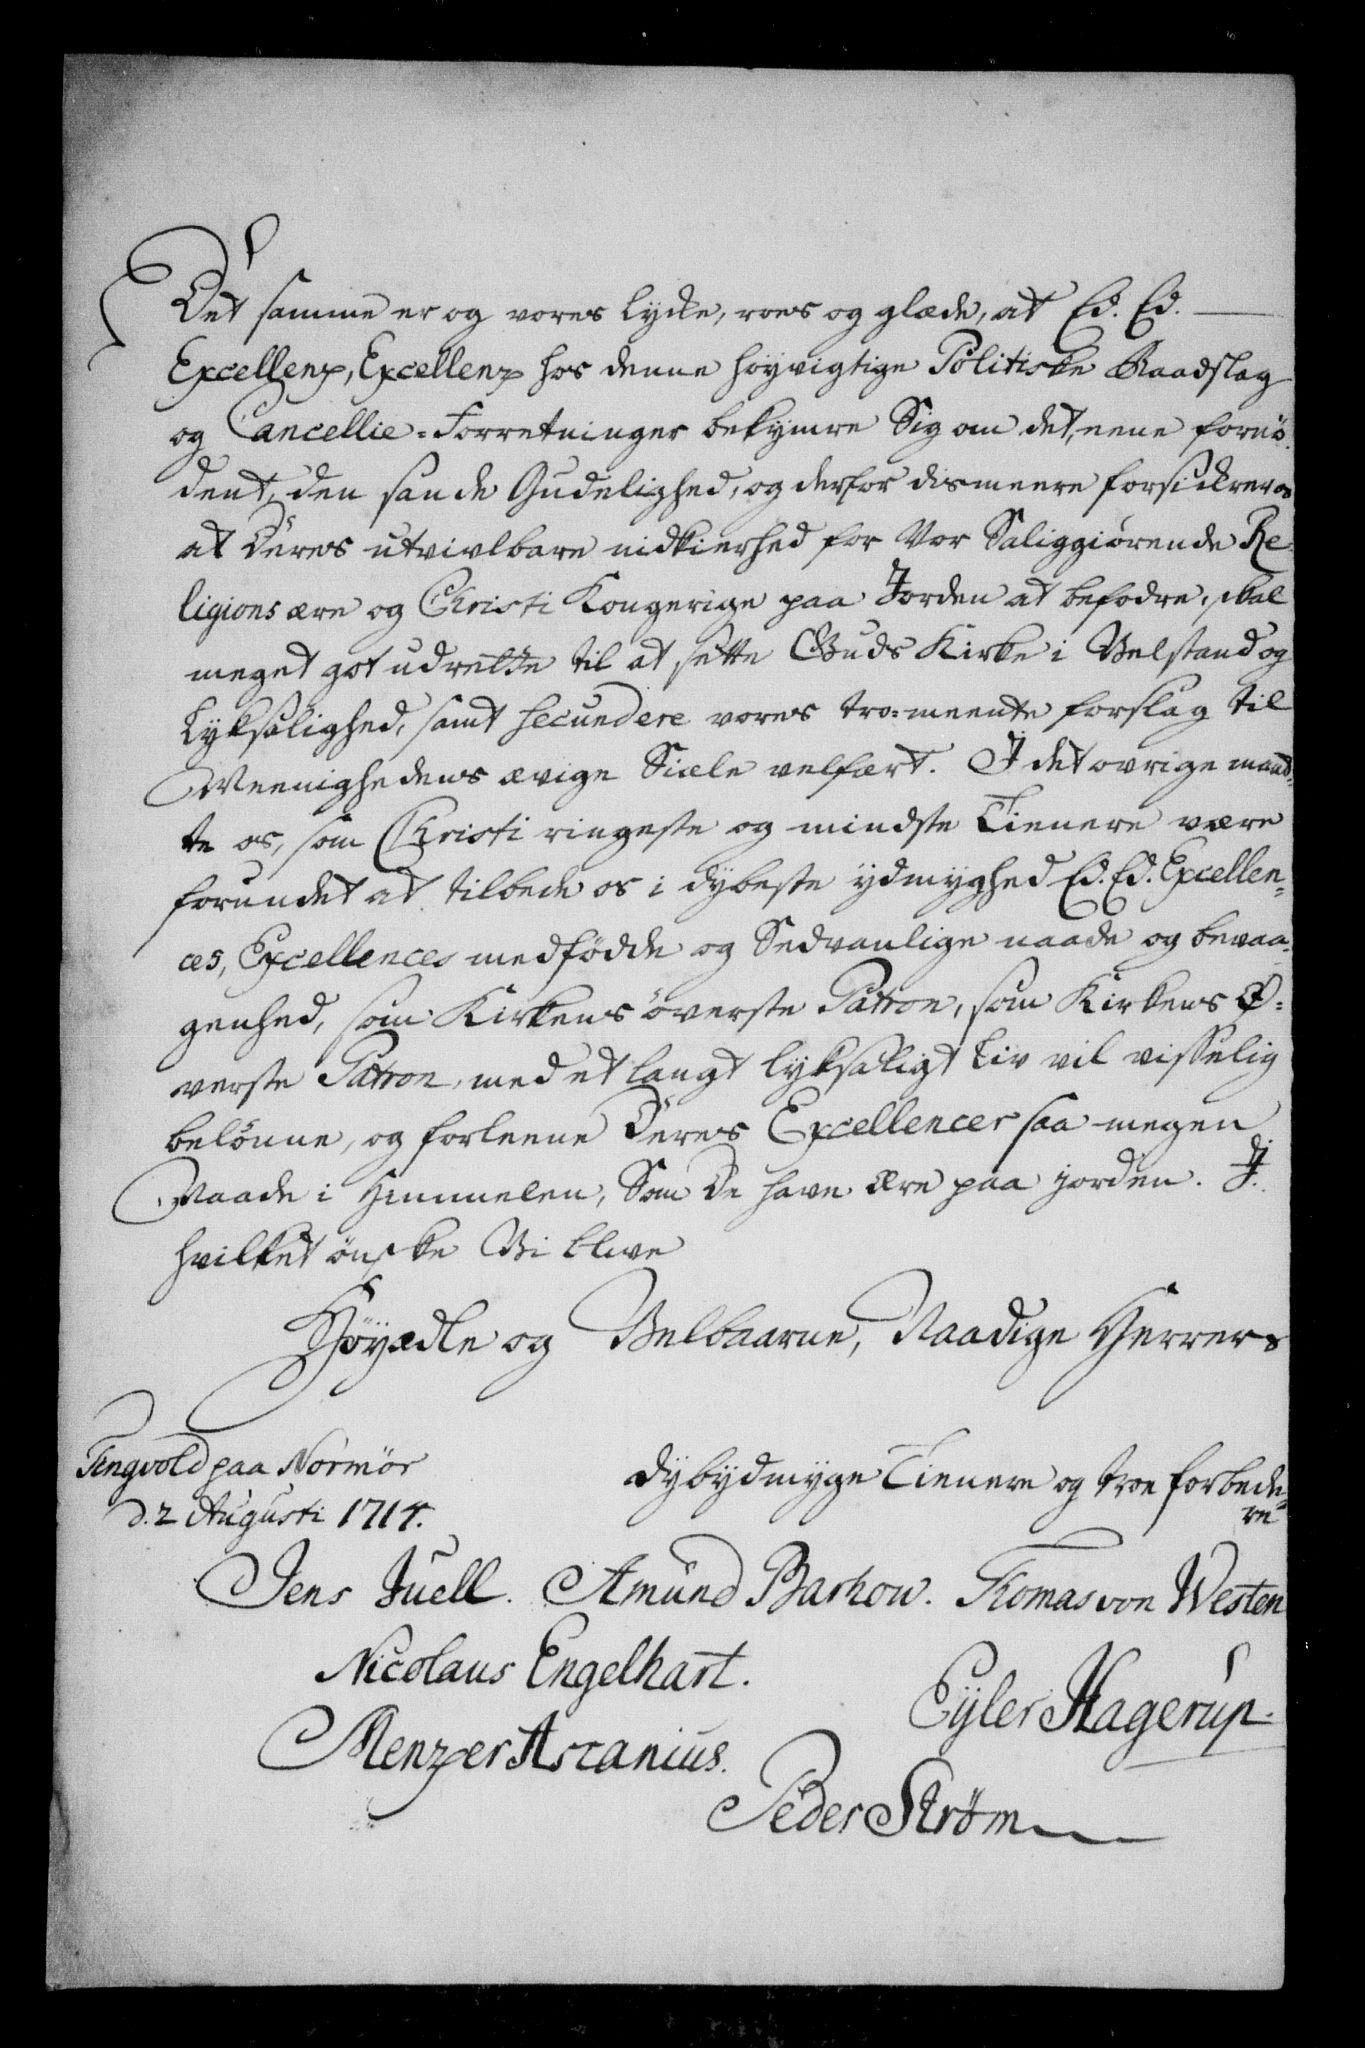 Det samme er og vores lycke, roes og glæde, at Ed. Ed.
Excellenz, Excellenz hos denne høyvigtige Politiske Raadslag
og Cancellie-Forretninger bekymre Sig om det eene fornö-
dent, den sande Gudelighed, og derfor dismeere forsickrer os
at Deres utvivlbare nidkierhed for Vor Saliggiørende Re-
ligions ære og Christi Kongerige paa Jorden at befodre, skal
meget got udrette til at sette Guds Kirke i Velstand og
Lyksalighed, samt secundere vores tro-meente forslag til
Meenighedens ævige Siæle velfært. I det øvrige maat-
te os, som Christi ringeste og mindste Tienere være
forundet at tilbede os i dybeste ydmyghed Ed. Ed. Excellen-
ces, Excellences medfödde og Sedvanlige naade og bevaa-
genhed, som Kirkens överste Patron, som Kirkens Ö-
verste Patron, med et langt lyksaligt Liv vil visselig
belönne, og forleene Deres Excellencer saa megen
Naade i Himmelen, Som De have Ære paa jorden. I
hvilket ønske Vi blive
Höyædle og Velbaarne, Naadige Herrers
Tingvold paa Normör
d. 2 Augusti 1714.
dybydmyge Tienere og troe forbede-
re
Jens Juell. Amünd Barhow. Thomas von Westen
Nicolaus Engelhart.
Eyler Hagerup.
Menzer Ascanius.
Peder Strøm